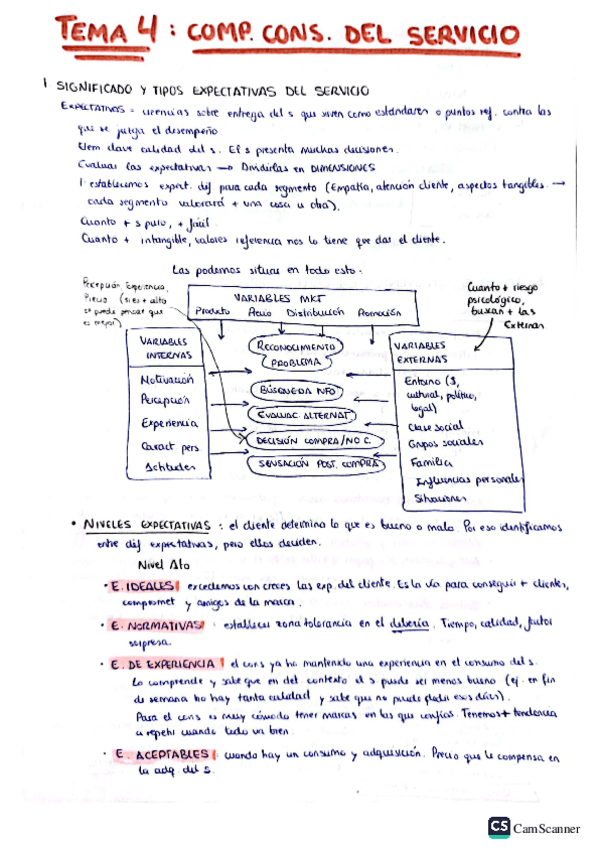 TEMA 4 : COMP. CONS. DEL SERVICIO
1 SIGNIFICADO Y TIPOS EXPECTATIVAS DEL SERVICIO
EXPECTATIVAS = creencias sobre entrega del s que sirven como estándares o puntos ref. contra las
que se juzga el desempeño
Elem clave calidad del s. El s presenta muchas decisiones.
Evaluar las expectativas → Dividirlas en DIMENSIONES
1º establecemos expect. dif para cada segmento (Empatía, atención cliente, aspectos tangibles. →
cada segmento valorará + una cosa u otra).
Cuanto + s puro, + fácil
Cuanto + intangible, valores referencia nos lo tiene que dar el cliente.
Las podemos situar en todo esto:
Percepción, Experiencia,
Precio (si es + alto
se puede pensar que
es mejor)
VARIABLES MKT
Producto Precio Distribución Promoción
Cuanto + riesgo
psicológico,
buscan + las
Externas
VARIABLES
INTERNAS
Motivación
Percepción
Experiencia
Caract pers
Actitudes
RECONOCIMIENTO
PROBLEMA
BÚSQUEDA INFO
EVALUAC. ALTERNAT
DECISIÓN COMPRA/NO C.
SENSACIÓN POST. COMPRA
VARIABLES
EXTERNAS
Entorno ($,
cultural, político,
legal)
Clase social
Grupos sociales
Familia
Influencias personales
Situaciones
• NIVELES EXPECTATIVAS : el cliente determina lo que es bueno o malo. Por eso identificamos
entre dif expectativas, pero ellos deciden.
Nivel Alto
• E. IDEALES : excedemos con creces las exp. del cliente. Es la vía para conseguir + clientes,
compromet y amigos de la marca.
• E. NORMATIVAS : establecer zona tolerancia en el debería. Tiempo, calidad, factor
sorpresa.
• E. DE EXPERIENCIA : el cons ya ha mantenido una experiencia en el consumo del s.
Lo comprende y sabe que en det. contexto el s puede ser menos bueno (ej. en fin
de semana no hay tanta calidad y sabe que no puede pedir esos días).
Para el cons es muy cómodo tener marcas en las que confías. Tenemos + tendencia
a repetir cuando todo va bien.
• E. ACEPTABLES : cuando hay un consumo y adquisición. Precio que le compensa en
la adq. del s.
CS CamScanner